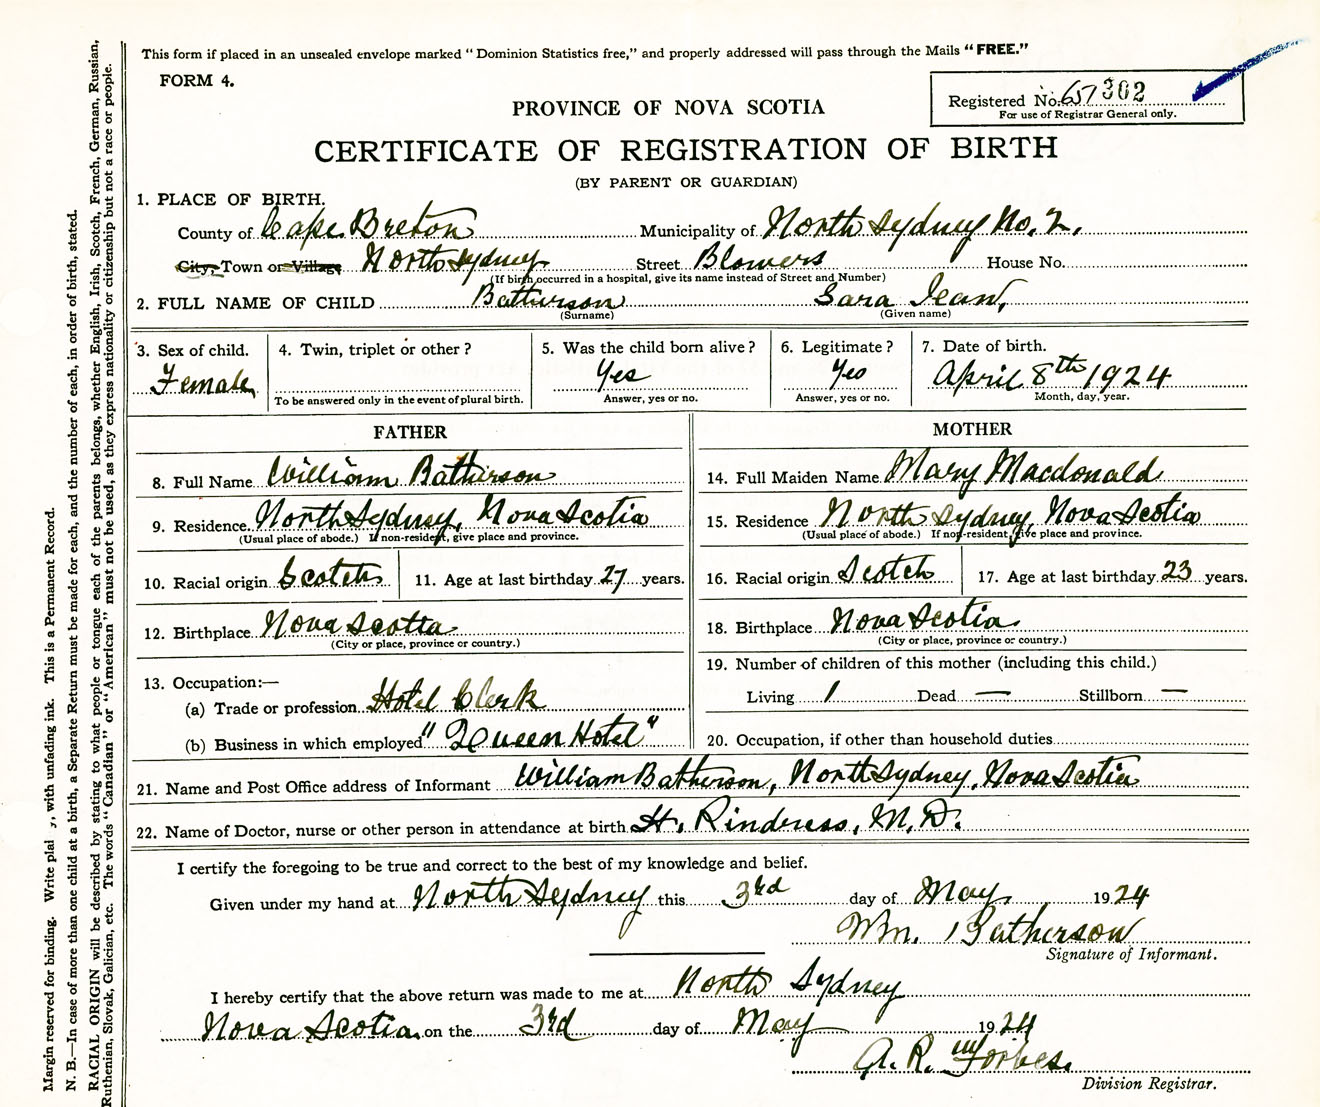 This form if placed in an unsealed envelope marked " Dominion Statistics free," and properly addressed will pass through the Mails "FREE."
FORM 4.
Registered No. 302
For use of Registrar General only.
PROVINCE OF NOVA SCOTIA
CERTIFICATE OF REGISTRATION OF BIRTH
(BY PARENT OR GUARDIAN)
1. PLACE OF BIRTH.
County of Cape Breton Municipality of North Sydney No. 2.
City, Town or Village North Sydney Street Blowers House No.
(If birth occurred in a hospital, give its name instead of Street and Number)
2. FULL NAME OF CHILD Batherson Sara Jean,
(Surname) (Given name)
3. Sex of child. 4. Twin, triplet or other ? 5. Was the child born alive ? 6. Legitimate ? 7. Date of birth.
Female Yes Yes April 8th 1924
To be answered only in the event of plural birth. Answer, yes or no. Answer, yes or no. Month, day, year.
FATHER MOTHER
8. Full Name William Batherson 14. Full Maiden Name Mary Macdonald
9. Residence North Sydney, Nova Scotia 15. Residence North Sydney, Nova Scotia
(Usual place of abode.) If non-resident, give place and province. (Usual place of abode.) If non-resident, give place and province.
10. Racial origin Scotch 11. Age at last birthday 27 years. 16. Racial origin Scotch 17. Age at last birthday 23 years.
12. Birthplace Nova Scotia 18. Birthplace Nova Scotia
(City or place, province or country.) (City or place, province or country.)
13. Occupation:— 19. Number of children of this mother (including this child.)
(a) Trade or profession Hotel Clerk Living 1 Dead — Stillborn —
(b) Business in which employed "Queen Hotel" 20. Occupation, if other than household duties
21. Name and Post Office address of Informant William Batherson, North Sydney, Nova Scotia
22. Name of Doctor, nurse or other person in attendance at birth H. Rindress, M.D.
I certify the foregoing to be true and correct to the best of my knowledge and belief.
Given under my hand at North Sydney this 3rd day of May, 1924
Wm. Batherson
Signature of Informant.
I hereby certify that the above return was made to me at North Sydney
Nova Scotia, on the 3rd day of May 1924
A. R. Forbes.
Division Registrar.
Margin reserved for binding. Write , with unfading ink. This is a Permanent Record.
N. B.—In case of more than one child at a birth, a Separate Return must be made for each, and the number of each, in order of birth, stated.
RACIAL ORIGIN will be described by stating to what people or tongue each of the parents belongs, whether English, Irish, Scotch, French, German, Russian,
Ruthenian, Slovak, Galician, etc. The words " Canadian " or " American " must not be used, as they express nationality or citizenship but not a race or people.